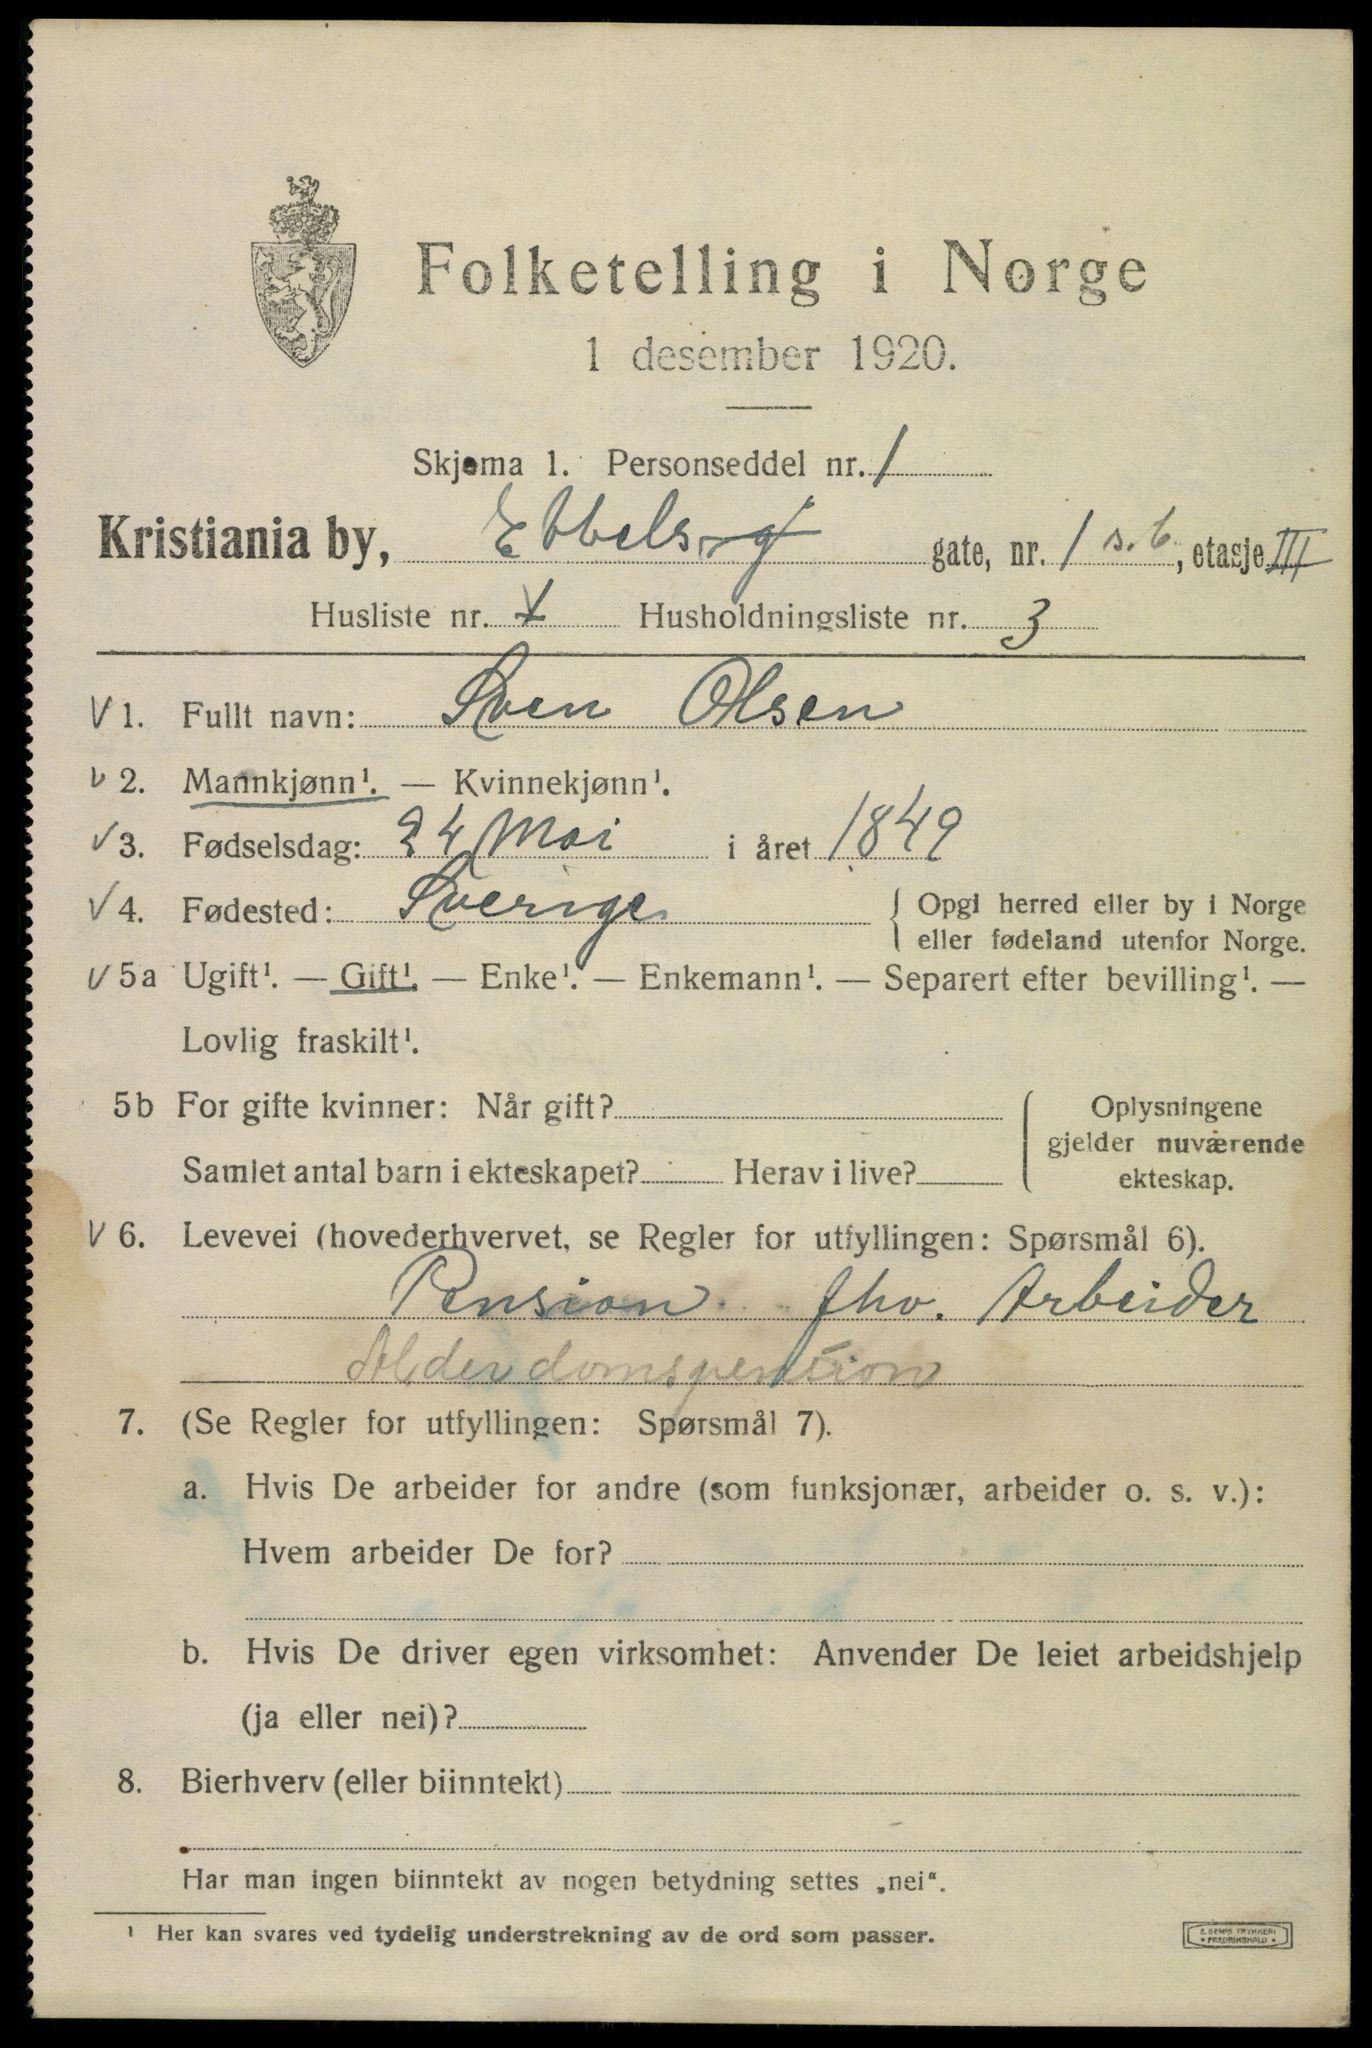 Folketelling i Norge
1 desember 1920.
Skjema 1. Personseddel nr. 1
Kristiania by, Ebbelsg gate, nr. 1 s.b, etasje III
Husliste nr. Husholdningsliste nr. 3
V 1. Fullt navn: Sven Olsen
V 2. Mannkjønn¹. — Kvinnekjønn¹.
V 3. Fødselsdag: 24 Mai i året 1849
V 4. Fødested: Sverige { Opgi herred eller by i Norge
eller fødeland utenfor Norge.
V 5a Ugift¹. — Gift¹. — Enke¹. — Enkemann¹. — Separert efter bevilling¹. —
Lovlig fraskilt¹.
5b For gifte kvinner: Når gift? Oplysningene
gjelder nuværende
Samlet antal barn i ekteskapet? Herav i live? ekteskap.
V 6. Levevei (hovederhvervet, se Regler for utfyllingen: Spørsmål 6).
Pension. fhv. Arbeider
Alderdomspension
7. (Se Regler for utfyllingen: Spørsmål 7).
a. Hvis De arbeider for andre (som funksjonær, arbeider o. s. v.):
Hvem arbeider De for?
b. Hvis De driver egen virksomhet: Anvender De leiet arbeidshjelp
(ja eller nei)?
8. Bierhverv (eller biinntekt)
Har man ingen biinntekt av nogen betydning settes „nei“.
¹ Her kan svares ved tydelig understrekning av de ord som passer.
E. SEMS TRYKKERI
• FREDRIKSHALD •